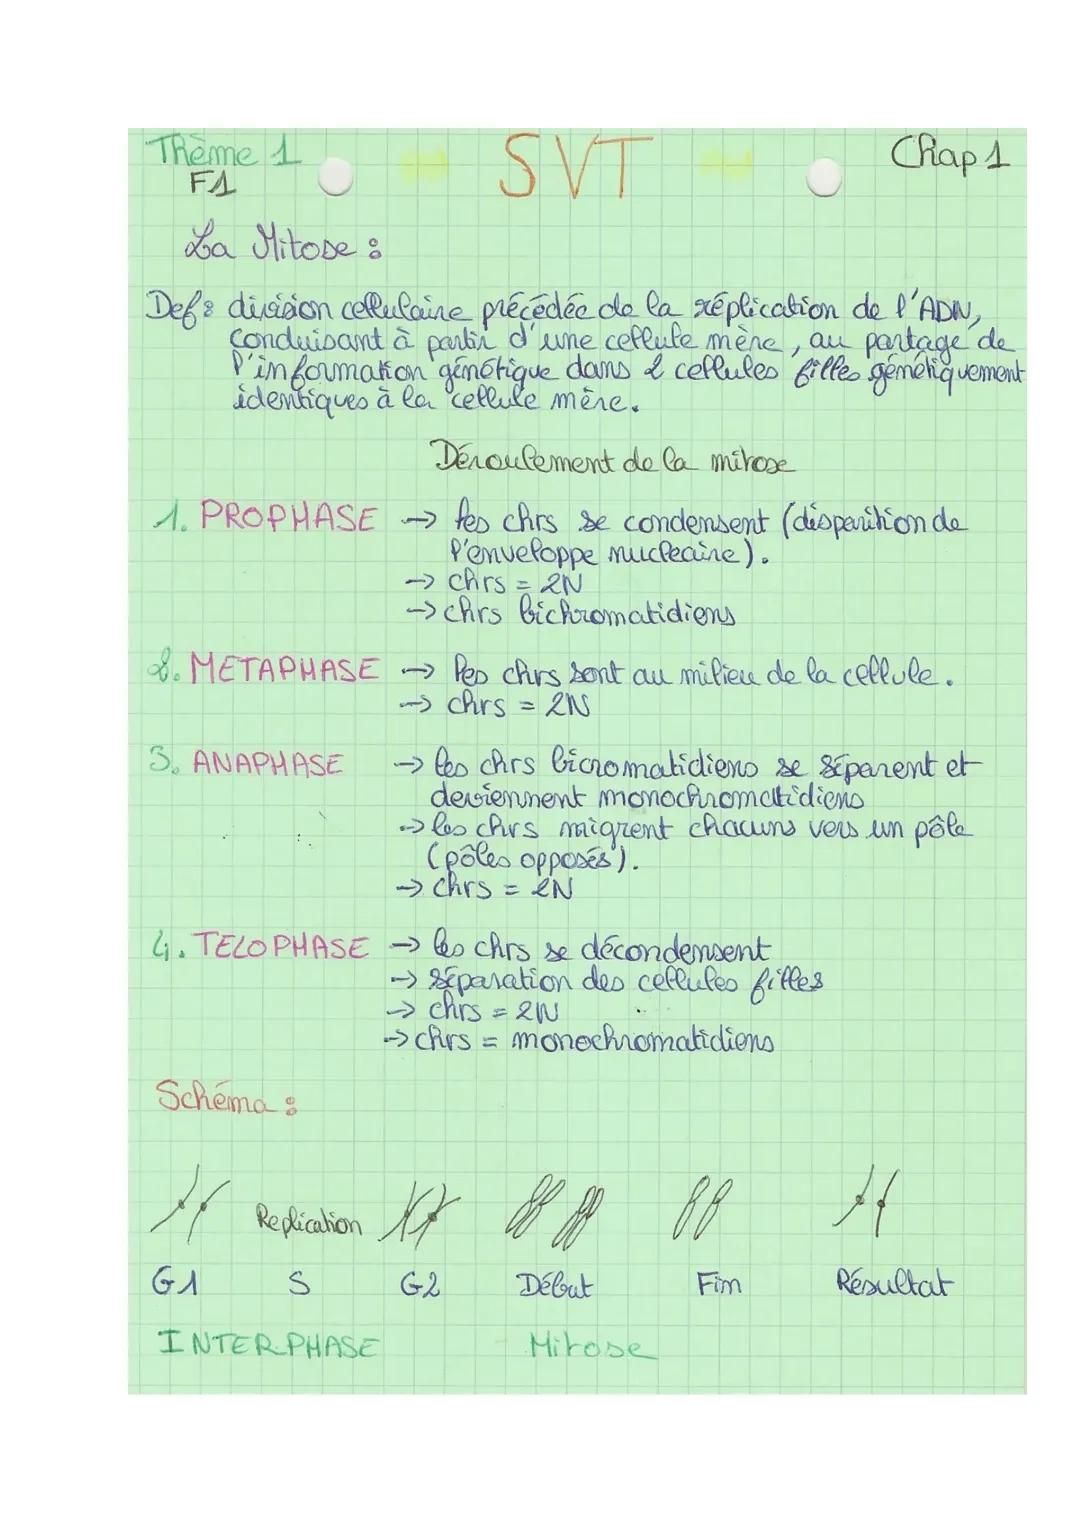 Thème 1 SVT Chap 1
F1
La Mitose :
Def : division cellulaire précédée de la réplication de l'ADN,
conduisant à partir d'une cellule mère, au partage de
l'information génétique dans 2 cellules filles génétiquement
identiques à la cellule mère.
Déroulement de la mitose
1. PROPHASE → les chrs se condensent (disparition de
l'enveloppe nucleaire).
→ chrs = 2N
→ chrs bichromatidiens
2. METAPHASE → les chrs sont au milieu de la cellule.
→ chrs = 2N
3. ANAPHASE → les chrs bicromatidiens se séparent et
deviennent monochromatidiens
→ les chrs migrent chacuns vers un pôle
(pôles opposés).
→ chrs = 2N
4. TELOPHASE → les chrs se décondensent
→ séparation des cellules filles
→ chrs = 2N
→ chrs = monochromatidiens
Schéma :
Replication
G1 S G2 Début Fim Résultat
INTERPHASE Mitose